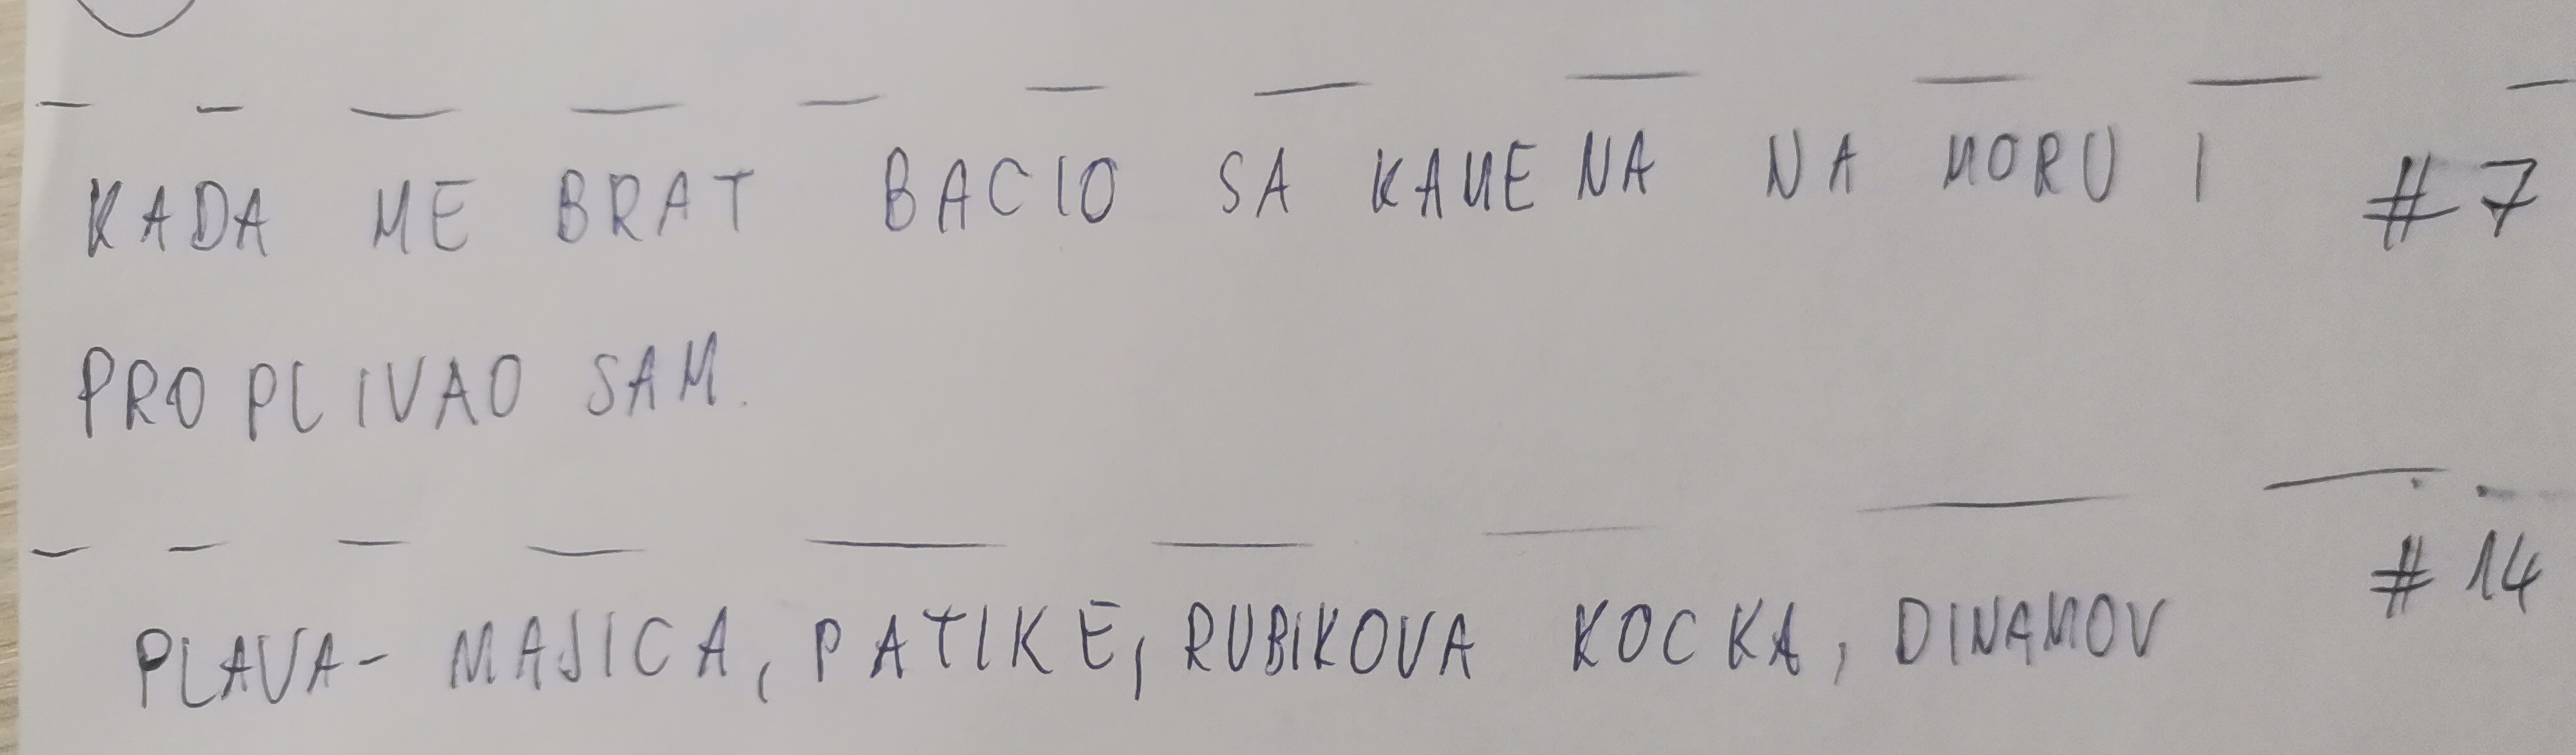 KADA ME BRAT BACIO SA KAMENA NA MORU I #7
PROPLIVAO SAM.
PLAVA- MAJICA, PATIKE, RUBIKOVA KOCKA, DINAMOV #14